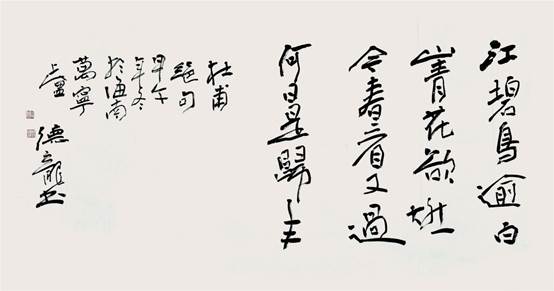 江碧鳥逾白
山青花欲燃
今春看又過
何日是歸年
杜甫
絕句
甲午
年冬
於海南
萬寧
德龍书